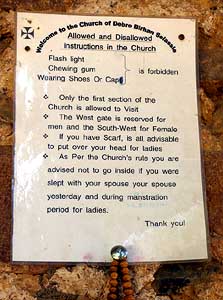 Welcome to the Church of Debre Birhan Selassie
Allowed and Disallowed
Instructions in the Church
Flash light
Chewing gum
is forbidden
Wearing Shoes Or Cap
❖ Only the first section of the
Church is allowed to Visit
❖ The West gate is reserved for
men and the South-West for Female
❖ If you have Scarf, is all advisable
to put over your head for ladies
❖ As Per the Church's rule you are
advised not to go inside if you were
slept with your spouse your spouse
yesterday and during manstration
period for ladies.
Thank you!